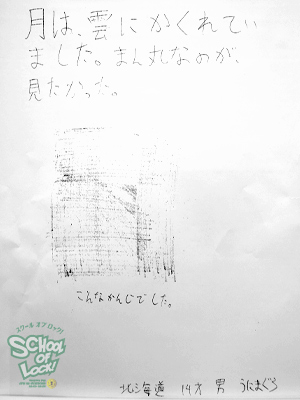 月は、雲にかくれてい
ました。まん丸なのが、
見たかった。
こんなかんじでした。
スクール オブ ロック!
SCHOOL
OF
LOCK!
北海道 14才 男 うにまぐろ